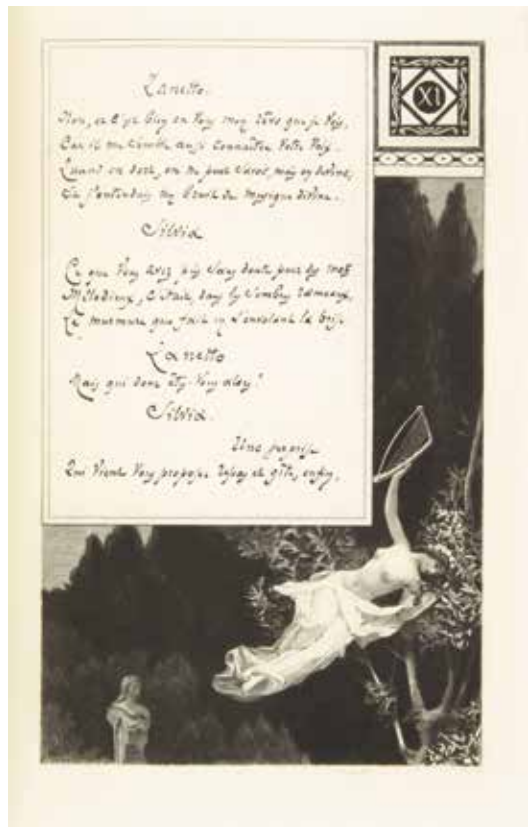 XI
Zanetto.
Non, et c'est bien en vous mon rêve que je vois,
Car il me semble aussi connaître votre voix.
Quand on dort, on ne peut savoir, mais on devine,
Et j'entendais un bruit de musique divine.
Silvia
Ce que vous avez pris sans doute pour des mots
Mélodieux, c'était, dans les sombres rameaux,
Le murmure que fait en s'envolant la brise
Zanetto
Mais qui donc êtes-vous alors?
Silvia.
Une surprise
Qui vient vous proposer repas et gîte, enfin,